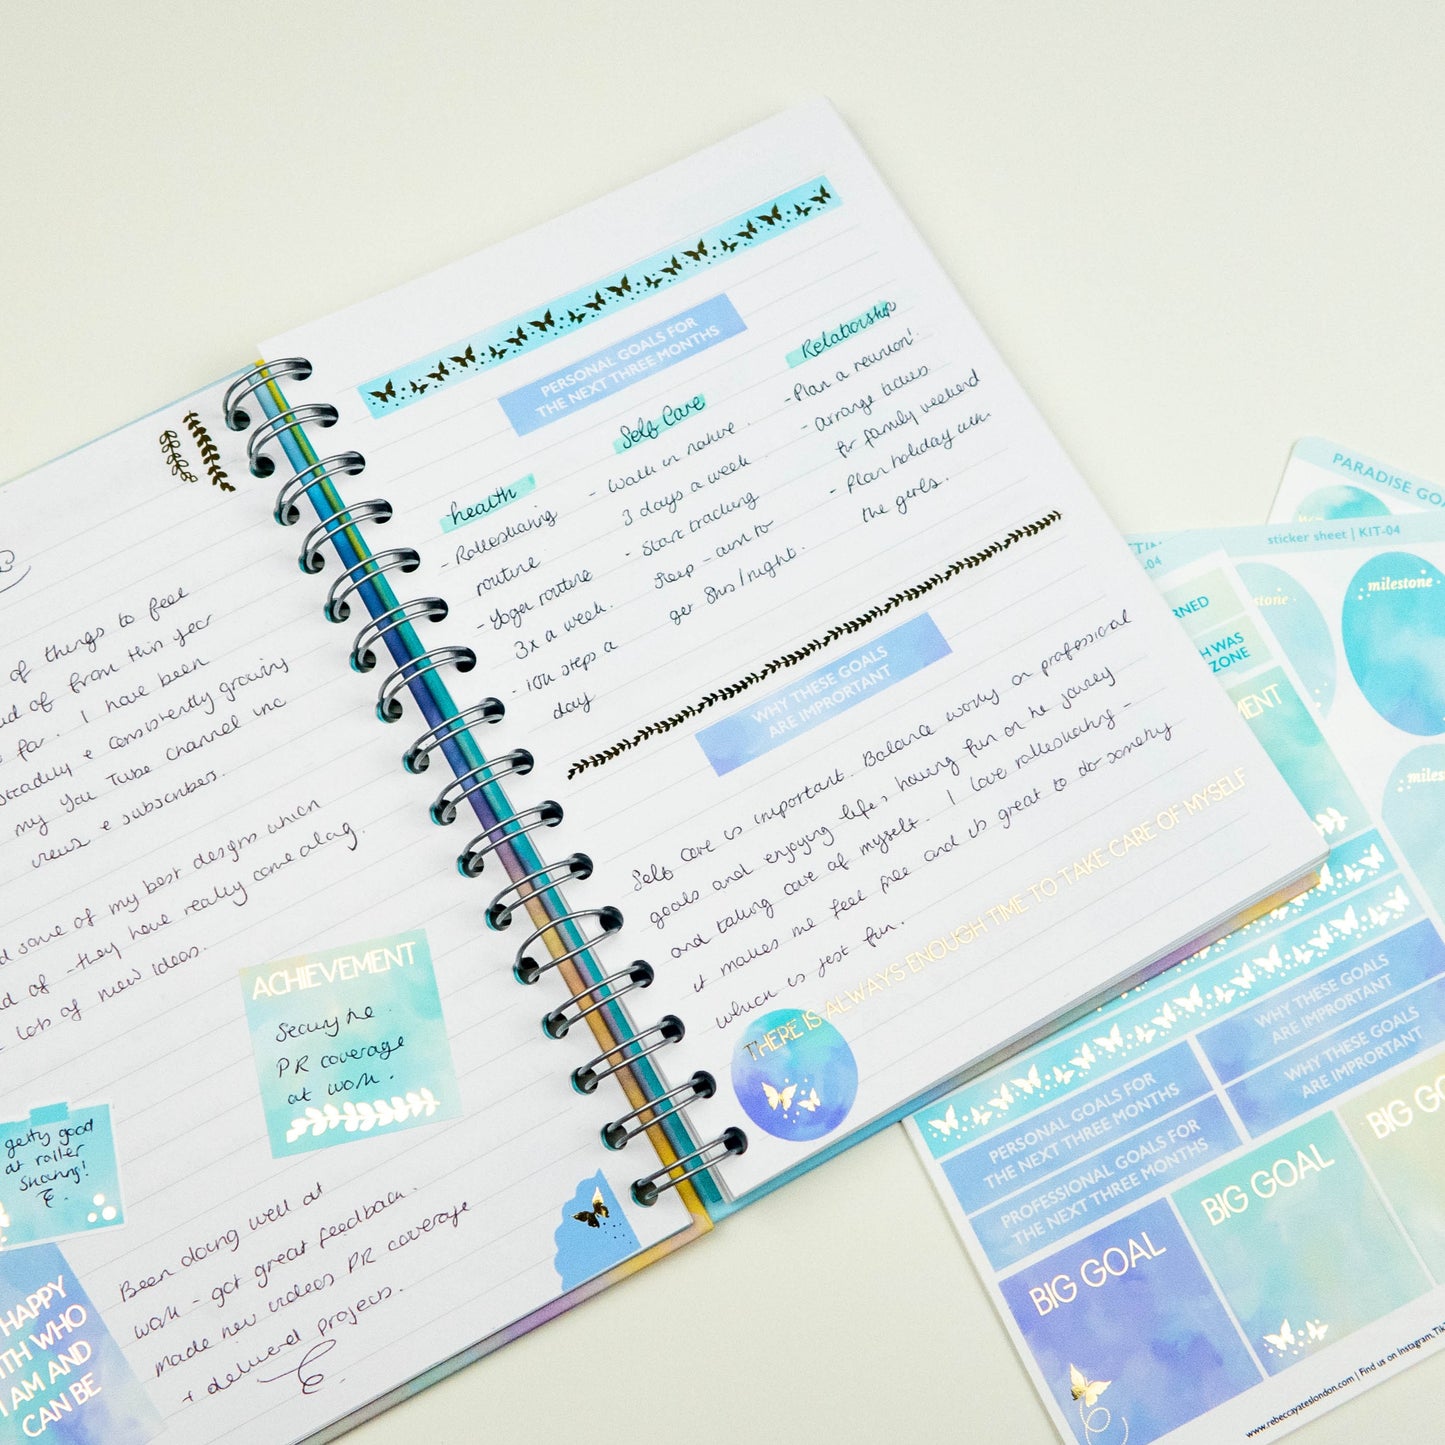 of things to feel
of from this year
so far. I have been
steadily + consistently growing
my You Tube channel inc
views + subscribers.
some of my best designs which
of - they have really come along.
lots of new ideas.
ACHIEVEMENT
Securing the
PR coverage
at work.
getting good
at roller
skating!
HAPPY
WITH WHO
I AM AND
CAN BE
Been doing well at
work - got great feedback.
made new videos PR coverage
+ delivered projects.
PERSONAL GOALS FOR
THE NEXT THREE MONTHS
health
- Rollerskating
routine
- Yoga routine
3x a week.
- 10k steps a
day
Self Care
- Walk in nature.
3 days a week.
- Start tracking
sleep - aim to
get 8hrs/night.
Relationship
- Plan a reunion!
- Arrange tickets
for family weekend
- Plan holiday with
the girls.
WHY THESE GOALS
ARE IMPORTANT
Self care is important. Balance worky or professional
goals and enjoying life, having fun on the journey
and taking care of myself. I love rollerskating -
it makes me feel free and is great to do something
which is just fun.
THERE IS ALWAYS ENOUGH TIME TO TAKE CARE OF MYSELF
PARADISE GO
sticker sheet | KIT-04
-04
milestone
stone
miles
RNED
H WAS
ZONE
MENT
WHY THESE GOALS
ARE IMPORTANT
WHY THESE GOALS
ARE IMPORTANT
PERSONAL GOALS FOR
THE NEXT THREE MONTHS
PROFESSIONAL GOALS FOR
THE NEXT THREE MONTHS
BIG GOAL
BIG GOAL
BIG GO
www.rebeccayateslondon.com | Find us on Instagram, TikT